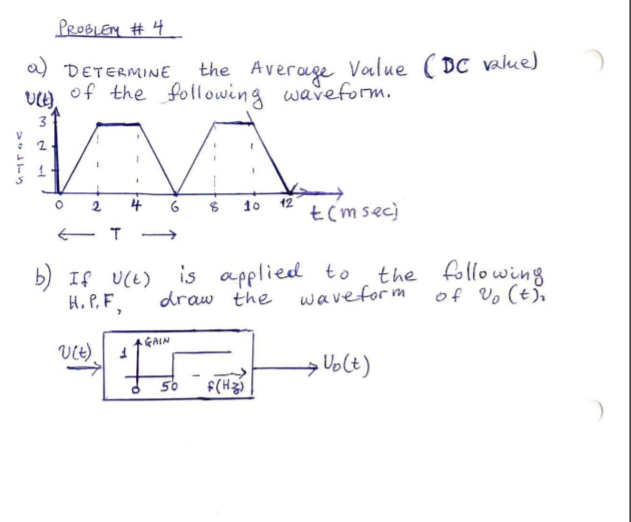 PROBLEM # 4
a) DETERMINE the Average Value (DC value)
of the following waveform.
V(t)
VOLTS
3
2
1
0 2 4 6 8 10 12
t (msec)
← T →
b) If V(t) is applied to the following
H.P.F, draw the waveform of Vo(t).
V(t)
GAIN
1
0 50 f(Hz)
Vo(t)